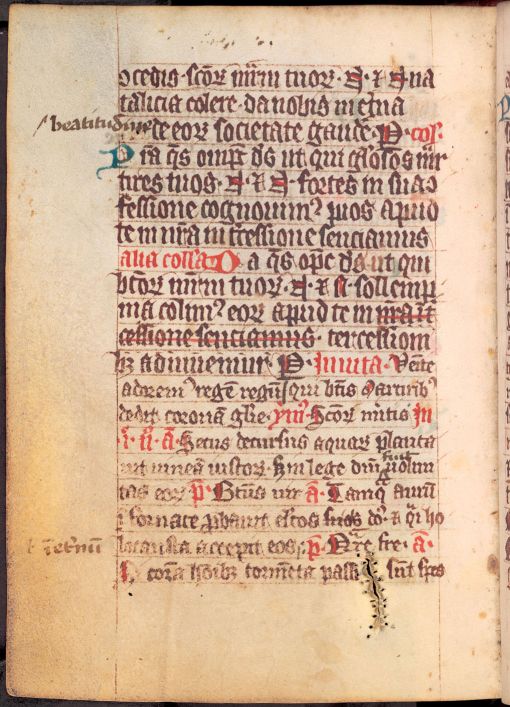 ocedis scōr mr̄m tuor N & N na
talicia colere da nobis in et̄na
beatitudīne
de eor societate gaud̄e P cō
P r̄a q̄s om̄ps d̄s ut qui gl̄osos mr̄
tires tuos N & N fortes in sua ꝯ
fessione cognouim⁹ pios apud
te in nr̄a int̄cessione senciamus
alia coll̄a P a q̄s op̄e d̄s ut qui
b̄tōr mr̄m tuor N & N sollemp
nia colim⁹ eor apud te in nr̄a īt
cessione senciamus tercessiom
bꝫ adiuuemur P Inuita Venite
adorem⁹ regē regū qui bn̄s martirib⁹
dedit coronā gl̄ie ymn⁹ Scōr m̄itis In
A Secus decursus aquar planta
uit vineā iustor hm̄ in lege dn̄i fuit uolun
tas eor p̄ B̄tus uir A Tamq̄ aurū
ī fornace p̄bauit el̄tos suos d̄o & q̄ȋ ho
locausta accepit eos p̄ A
et̄nū
corā hōibꝫ torm̄eta passi sūnt spes